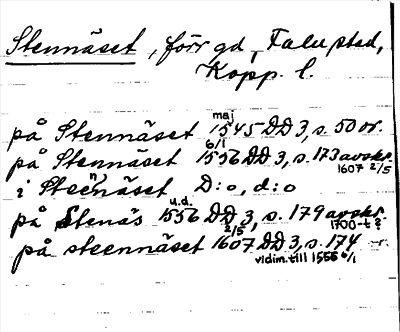 Stennäset, förr gd, Falu sted,
Kopp. l.
maj
på Stennäset 1545 DD 3, s. 50 or.
6/1
på Stennäset 1556 DD 3, s. 173 avskr.
1607 2/5
i Stennäset D:o, d:o
u.d.
på Stenäs 1556 DD 3, s. 179 avskr.
2/5 1700-t ?
på steennäset 1607 DD 3, s. 174
vidim. till 1556 6/1